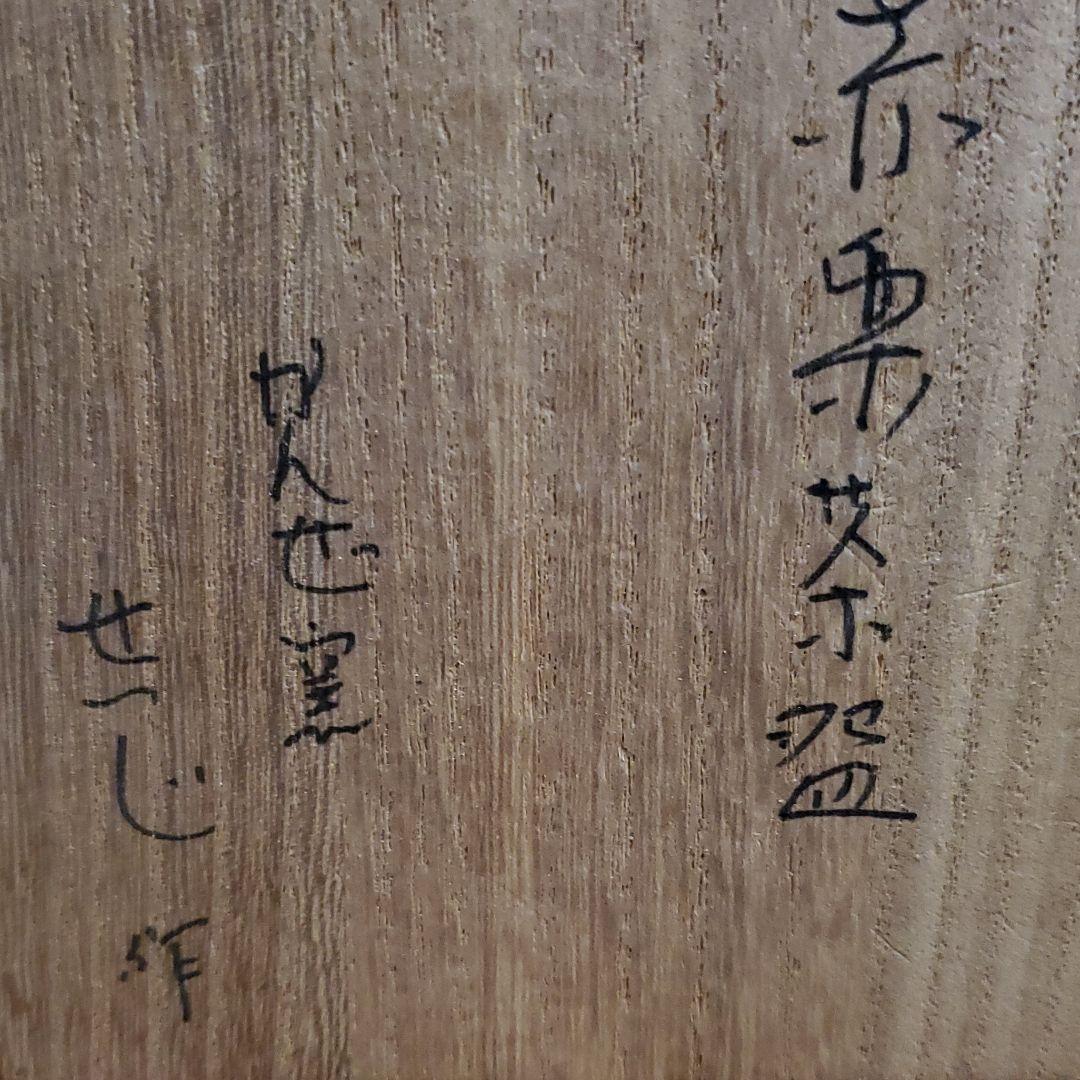 赤楽茶盌
かんぜ窯
せいじ作